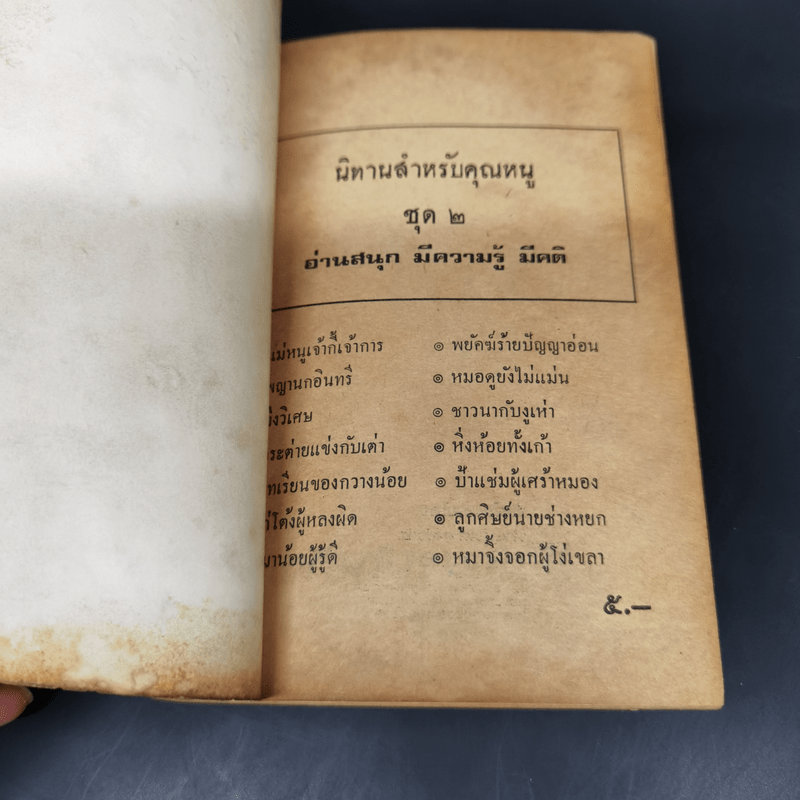 นิทานสำหรับคุณหนู
ชุด ๒
อ่านสนุก มีความรู้ มีคติ
แม่หนูเจ้ากี้เจ้าการ ๏ พยัคฆ์ร้ายปัญญาอ่อน
พญานกอินทรี ๏ หมอดูยังไม่แม่น
วิเศษ ๏ ชาวนากับงูเห่า
กระต่ายแข่งกับเต่า ๏ หิ่งห้อยทั้งเก้า
บทเรียนของกวางน้อย ๏ ป้าแช่มผู้เศร้าหมอง
ผู้หลงผิด ๏ ลูกศิษย์นายช่างหยก
น้อยผู้รู้ดี ๏ หมาจิ้งจอกผู้โง่เขลา
๕.—